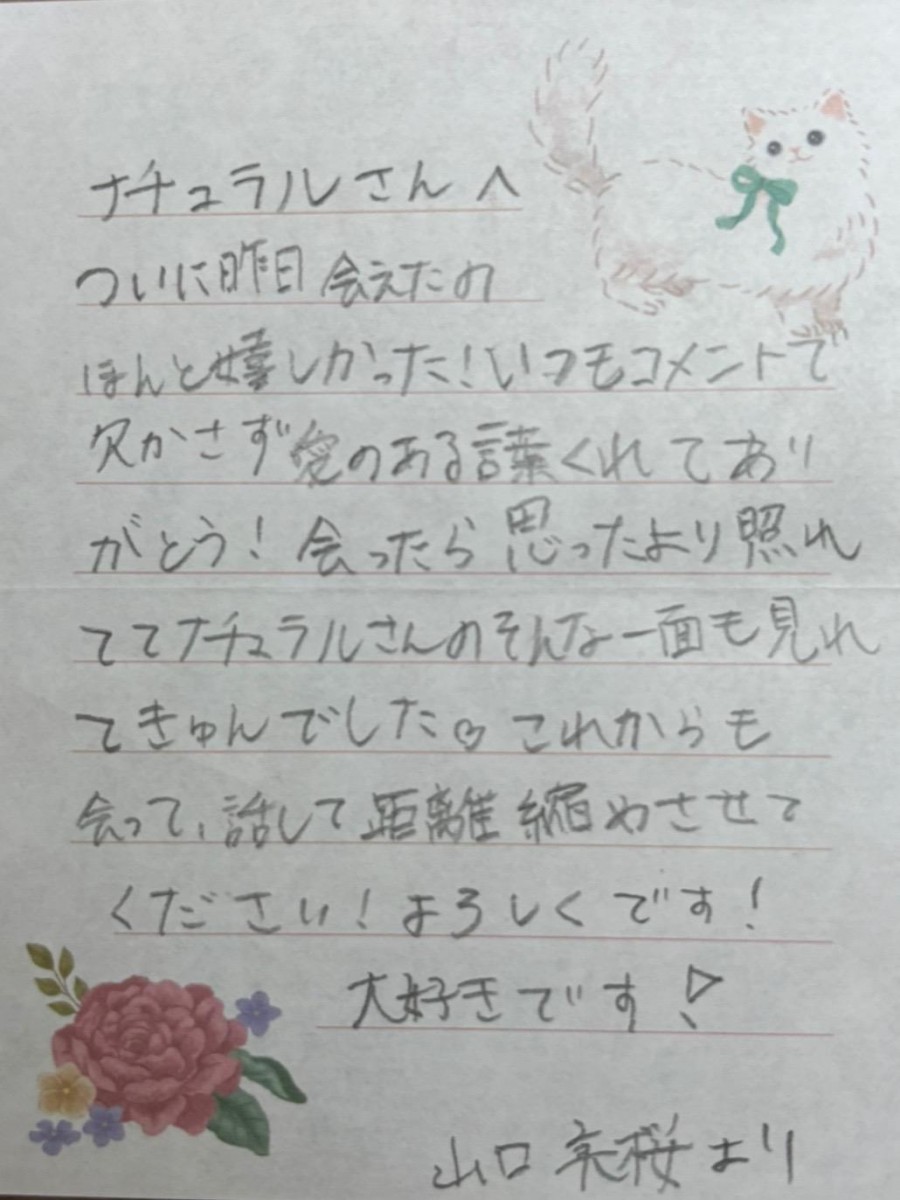 ナチュラルさんへ
ついに昨日会えたの
ほんと嬉しかった!いつもコメントで
欠かさず愛のある言葉くれてあり
がとう!会ったら思ったより照れ
ててナチュラルさんのそんな一面も見れ
てきゅんでした♡これからも
会って、話して距離縮めさせて
ください!よろしくです!
大好きです!
山口 桜より